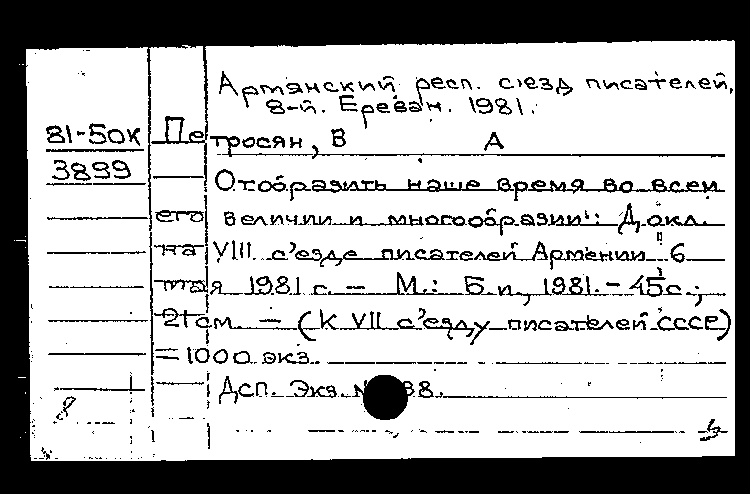 Армянский респ. съезд писателей,
8-й. Ереван. 1981.
81-50к Петросян, В А
3899
Отобразить наше время во всем
его величии и многообразии: Докл.
на VIII с'езде писателей Армении 6
мая 1981 г. — М.: Б.и., 1981. - 45с.;
21см. — (К VII с'езду писателей СССР)
= 1000 экз.
Дсп. Экз. 38.